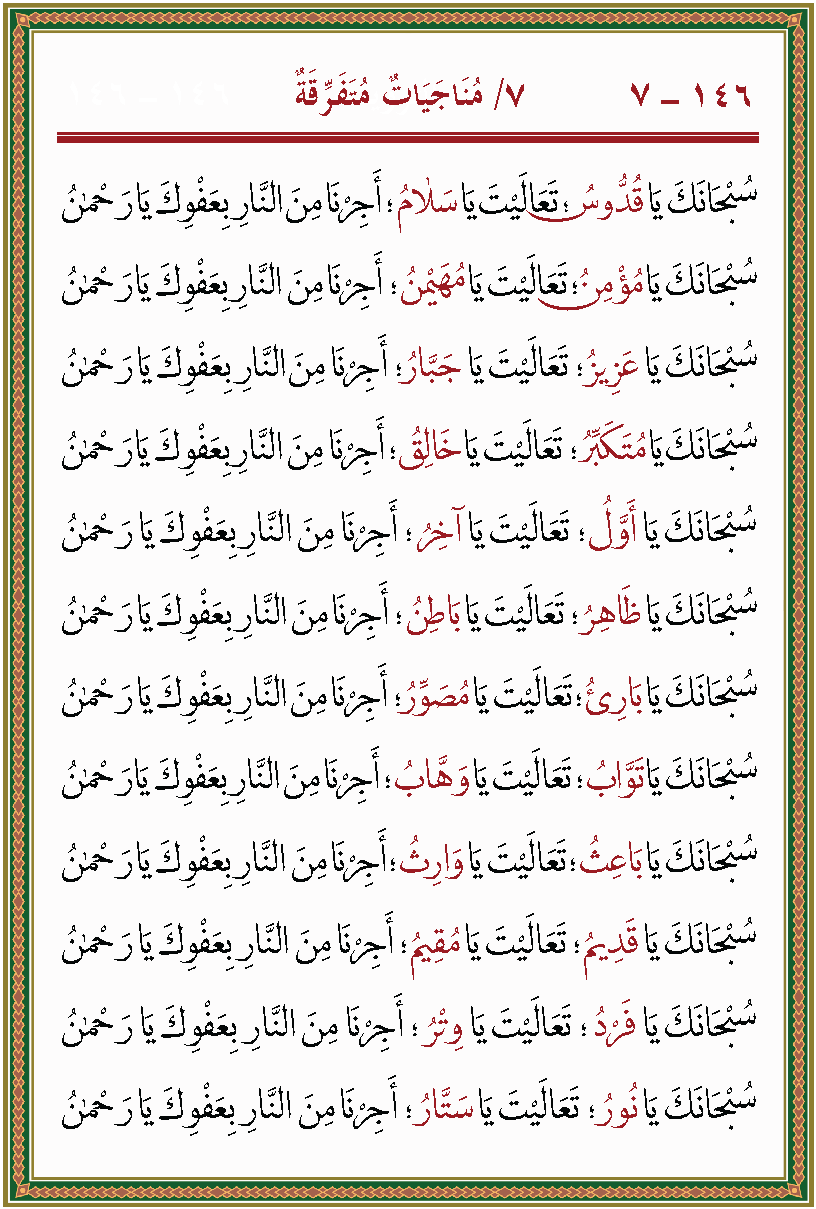 ١٤٦ – ٧ ٧/ مُنَاجَيَاتٌ مُتَفَرِّقَةٌ
سُبْحَانَكَ يَا قُدُّوسُ؛ تَعَالَيْتَ يَا سَلَامُ؛ أَجِرْنَا مِنَ النَّارِ بِعَفْوِكَ يَا رَحْمٰنُ
سُبْحَانَكَ يَا مُؤْمِنُ؛ تَعَالَيْتَ يَا مُهَيْمِنُ؛ أَجِرْنَا مِنَ النَّارِ بِعَفْوِكَ يَا رَحْمٰنُ
سُبْحَانَكَ يَا عَزِيزُ؛ تَعَالَيْتَ يَا جَبَّارُ؛ أَجِرْنَا مِنَ النَّارِ بِعَفْوِكَ يَا رَحْمٰنُ
سُبْحَانَكَ يَا مُتَكَبِّرُ؛ تَعَالَيْتَ يَا خَالِقُ؛ أَجِرْنَا مِنَ النَّارِ بِعَفْوِكَ يَا رَحْمٰنُ
سُبْحَانَكَ يَا أَوَّلُ؛ تَعَالَيْتَ يَا آخِرُ؛ أَجِرْنَا مِنَ النَّارِ بِعَفْوِكَ يَا رَحْمٰنُ
سُبْحَانَكَ يَا ظَاهِرُ؛ تَعَالَيْتَ يَا بَاطِنُ؛ أَجِرْنَا مِنَ النَّارِ بِعَفْوِكَ يَا رَحْمٰنُ
سُبْحَانَكَ يَا بَارِئُ؛ تَعَالَيْتَ يَا مُصَوِّرُ؛ أَجِرْنَا مِنَ النَّارِ بِعَفْوِكَ يَا رَحْمٰنُ
سُبْحَانَكَ يَا تَوَّابُ؛ تَعَالَيْتَ يَا وَهَّابُ؛ أَجِرْنَا مِنَ النَّارِ بِعَفْوِكَ يَا رَحْمٰنُ
سُبْحَانَكَ يَا بَاعِثُ؛ تَعَالَيْتَ يَا وَارِثُ؛ أَجِرْنَا مِنَ النَّارِ بِعَفْوِكَ يَا رَحْمٰنُ
سُبْحَانَكَ يَا قَدِيمُ؛ تَعَالَيْتَ يَا مُقِيمُ؛ أَجِرْنَا مِنَ النَّارِ بِعَفْوِكَ يَا رَحْمٰنُ
سُبْحَانَكَ يَا فَرْدُ؛ تَعَالَيْتَ يَا وِتْرُ؛ أَجِرْنَا مِنَ النَّارِ بِعَفْوِكَ يَا رَحْمٰنُ
سُبْحَانَكَ يَا نُورُ؛ تَعَالَيْتَ يَا سَتَّارُ؛ أَجِرْنَا مِنَ النَّارِ بِعَفْوِكَ يَا رَحْمٰنُ